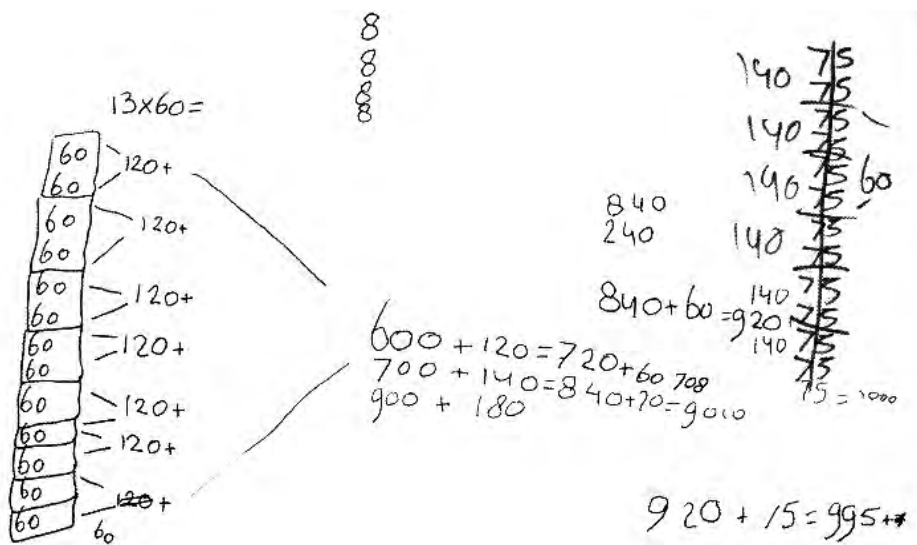 8
8
8
8
13x60=
60
60
120+
60
60
120+
60
60
120+
60
60
120+
60
60
120+
60
120+
60
60
120+
60
600 + 120 = 720 + 60 708
700 + 140 = 840 + 70 = 9010
900 + 180
840
240
840 + 60 = 920
140 75
75
140 75
75
140 75
75
60
140 75
75
140 75
75
140 75
75
75 = 1000
920 + 75 = 995